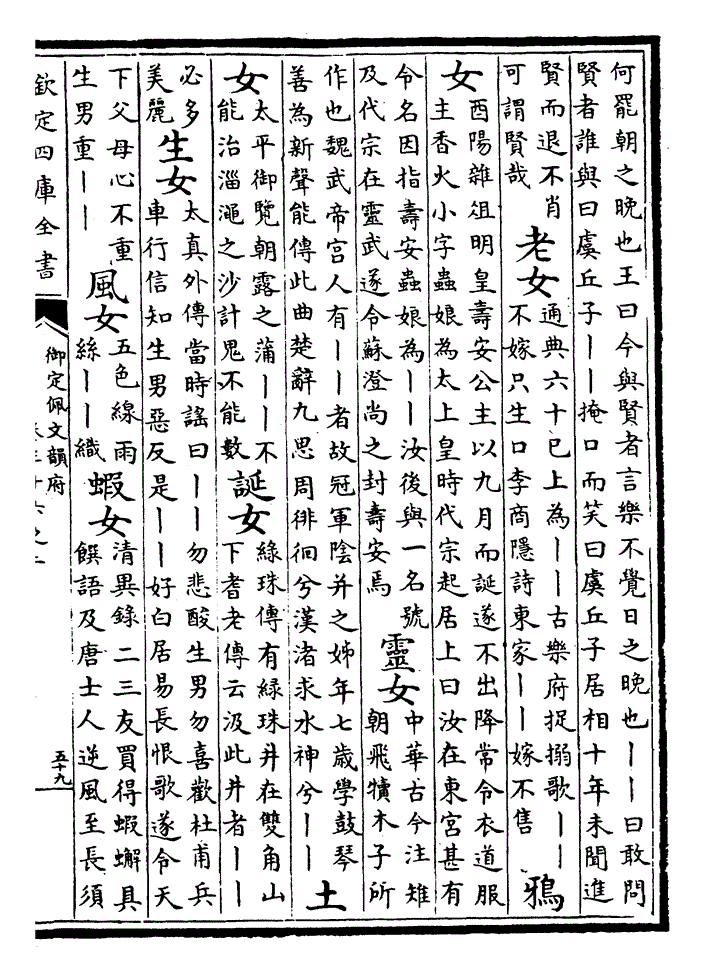 何罷朝之晚也王曰今與賢者言樂不覺日之晚也丨丨曰敢問
賢者誰與曰虞丘子丨丨掩口而笑曰虞丘子居相十年未聞進
賢而退不肖
可謂賢哉
老女
通典六十已上為丨丨古樂府捉搦歌丨丨
不嫁只生口李商隱詩東家丨丨嫁不售
鴉
女
酉陽雜俎明皇壽安公主以九月而誕遂不出降常令衣道服
主香火小字蟲娘為太上皇時代宗起居上曰汝在東宮甚有
令名因指壽安蟲娘為丨丨汝後與一名號
及代宗在靈武遂令蘇澄尚之封壽安焉
靈女
中華古今注雉
朝飛犢木子所
作也魏武帝宮人有丨丨者故冠軍陰并之姊年七歲學鼓琴
善為新聲能傳此曲楚辭九思周徘徊兮漢渚求水神兮丨丨
土
女
太平御覽朝露之蒲丨丨不
能治淄澠之沙計鬼不能數
誕女
綠珠傳有綠珠井在雙角山
下耆老傳云汲此井者丨丨
必多
美麗
生女
太真外傳當時謠曰丨丨勿悲酸生男勿喜歡杜甫兵
車行信知生男惡反是丨丨好白居易長恨歌遂令天
下父母心不重
生男重丨丨
風女
五色線雨
絲丨丨織
蝦女
清異錄二三友買得蝦蠏具
饌語及唐士人逆風至長須
欽定四庫全書
御定佩文韻府
五十九